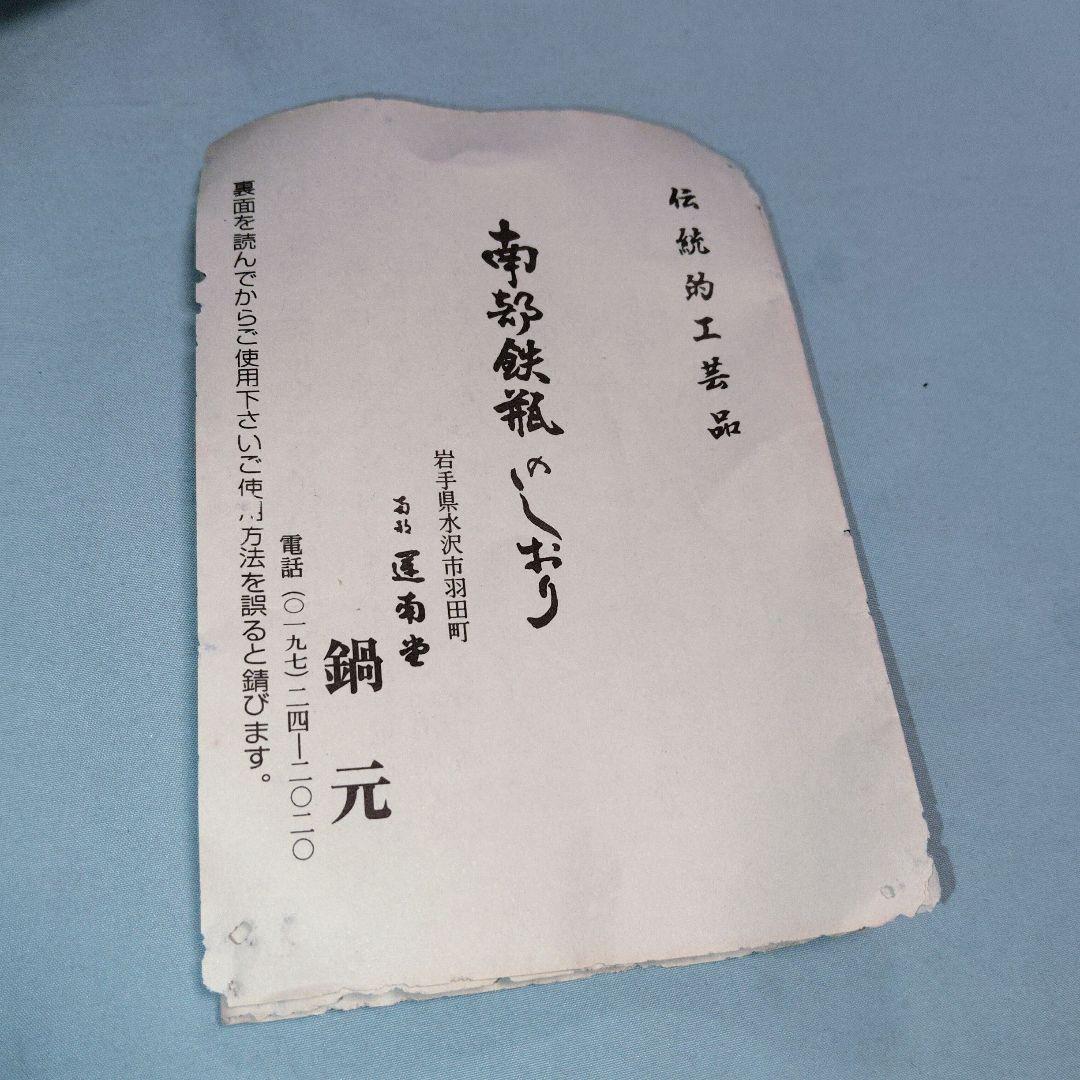 伝統的工芸品
南部鉄瓶のしおり
岩手県水沢市羽田町
南部 運南堂
鍋元
電話(〇一九七)二四―二〇二〇
裏面を読んでからご使用下さいご使用方法を誤ると錆びます。